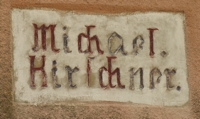 Michael.
Kirschner.